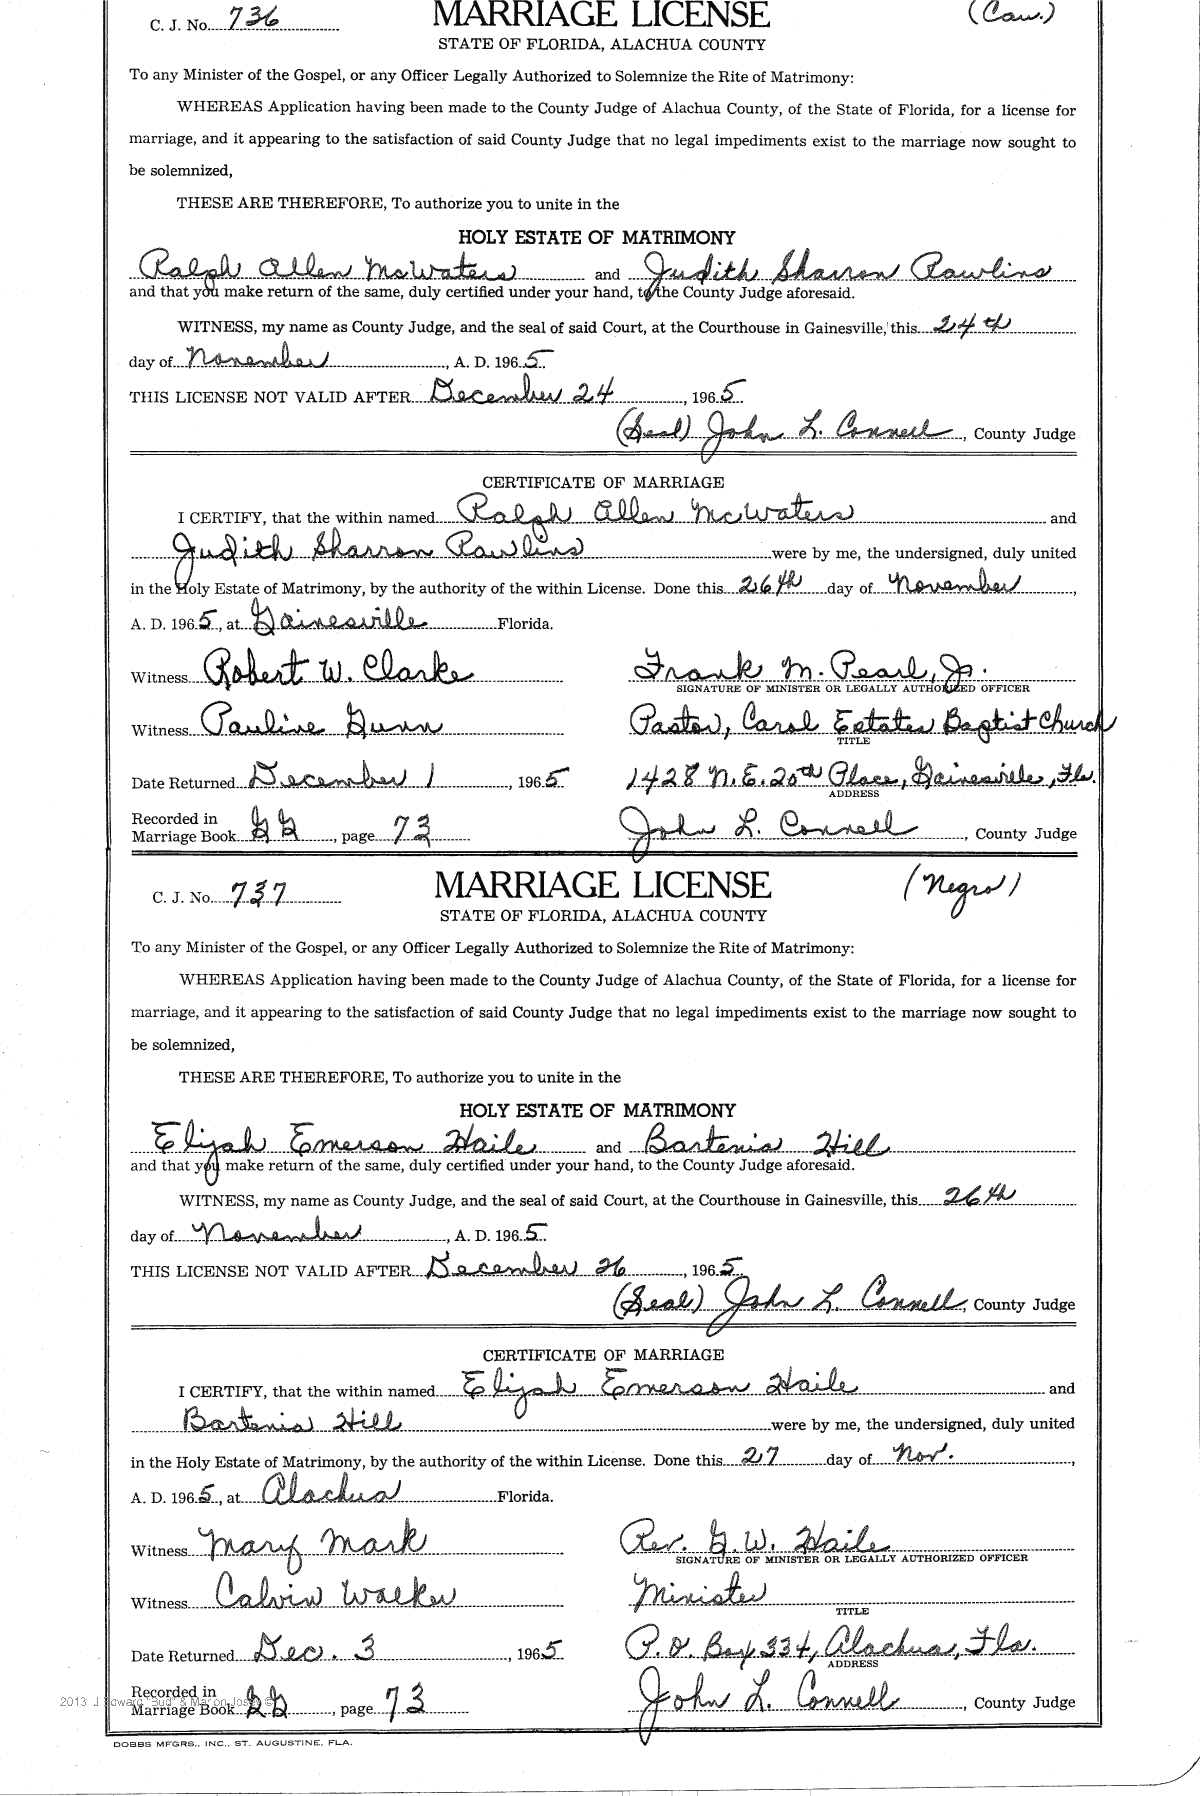 C. J. No. 736 MARRIAGE LICENSE (Cau.)
STATE OF FLORIDA, ALACHUA COUNTY
To any Minister of the Gospel, or any Officer Legally Authorized to Solemnize the Rite of Matrimony:
WHEREAS Application having been made to the County Judge of Alachua County, of the State of Florida, for a license for
marriage, and it appearing to the satisfaction of said County Judge that no legal impediments exist to the marriage now sought to
be solemnized,
THESE ARE THEREFORE, To authorize you to unite in the
HOLY ESTATE OF MATRIMONY
Ralph Allen McWaters and Judith Sharron Rawlins
and that you make return of the same, duly certified under your hand, to the County Judge aforesaid.
WITNESS, my name as County Judge, and the seal of said Court, at the Courthouse in Gainesville, this 24th
day of November, A. D. 1965.
THIS LICENSE NOT VALID AFTER December 24, 1965
(Seal) John L. Connell, County Judge
CERTIFICATE OF MARRIAGE
I CERTIFY, that the within named Ralph Allen McWaters and
Judith Sharron Rawlins were by me, the undersigned, duly united
in the Holy Estate of Matrimony, by the authority of the within License. Done this 26th day of November,
A. D. 1965, at Gainesville Florida.
Witness Robert W. Clarke Frank M. Pearl, Jr.
SIGNATURE OF MINISTER OR LEGALLY AUTHORIZED OFFICER
Witness Pauline Gunn Pastor, Carol Estates Baptist Church
TITLE
Date Returned December 1, 1965 1428 N.E. 20th Place, Gainesville, Fla.
ADDRESS
Recorded in
Marriage Book GG, page 73 John L. Connell, County Judge
C. J. No. 737 MARRIAGE LICENSE (Negro)
STATE OF FLORIDA, ALACHUA COUNTY
To any Minister of the Gospel, or any Officer Legally Authorized to Solemnize the Rite of Matrimony:
WHEREAS Application having been made to the County Judge of Alachua County, of the State of Florida, for a license for
marriage, and it appearing to the satisfaction of said County Judge that no legal impediments exist to the marriage now sought to
be solemnized,
THESE ARE THEREFORE, To authorize you to unite in the
HOLY ESTATE OF MATRIMONY
Elijah Emerson Haile and Bartenia Hill
and that you make return of the same, duly certified under your hand, to the County Judge aforesaid.
WITNESS, my name as County Judge, and the seal of said Court, at the Courthouse in Gainesville, this 26th
day of November, A. D. 1965.
THIS LICENSE NOT VALID AFTER December 26, 1965
(Seal) John L. Connell, County Judge
CERTIFICATE OF MARRIAGE
I CERTIFY, that the within named Elijah Emerson Haile and
Bartenia Hill were by me, the undersigned, duly united
in the Holy Estate of Matrimony, by the authority of the within License. Done this 27 day of Nov.,
A. D. 1965, at Alachua Florida.
Witness Mary Mark Rev. G. W. Haile
SIGNATURE OF MINISTER OR LEGALLY AUTHORIZED OFFICER
Witness Calvin Walker Minister
TITLE
Date Returned Dec. 3, 1965 P.O. Box 334, Alachua, Fla.
ADDRESS
Recorded in
Marriage Book GG, page 73 John L. Connell, County Judge
DOBBS MFGRS., INC., ST. AUGUSTINE, FLA.
2013 J Edward "Bud" &